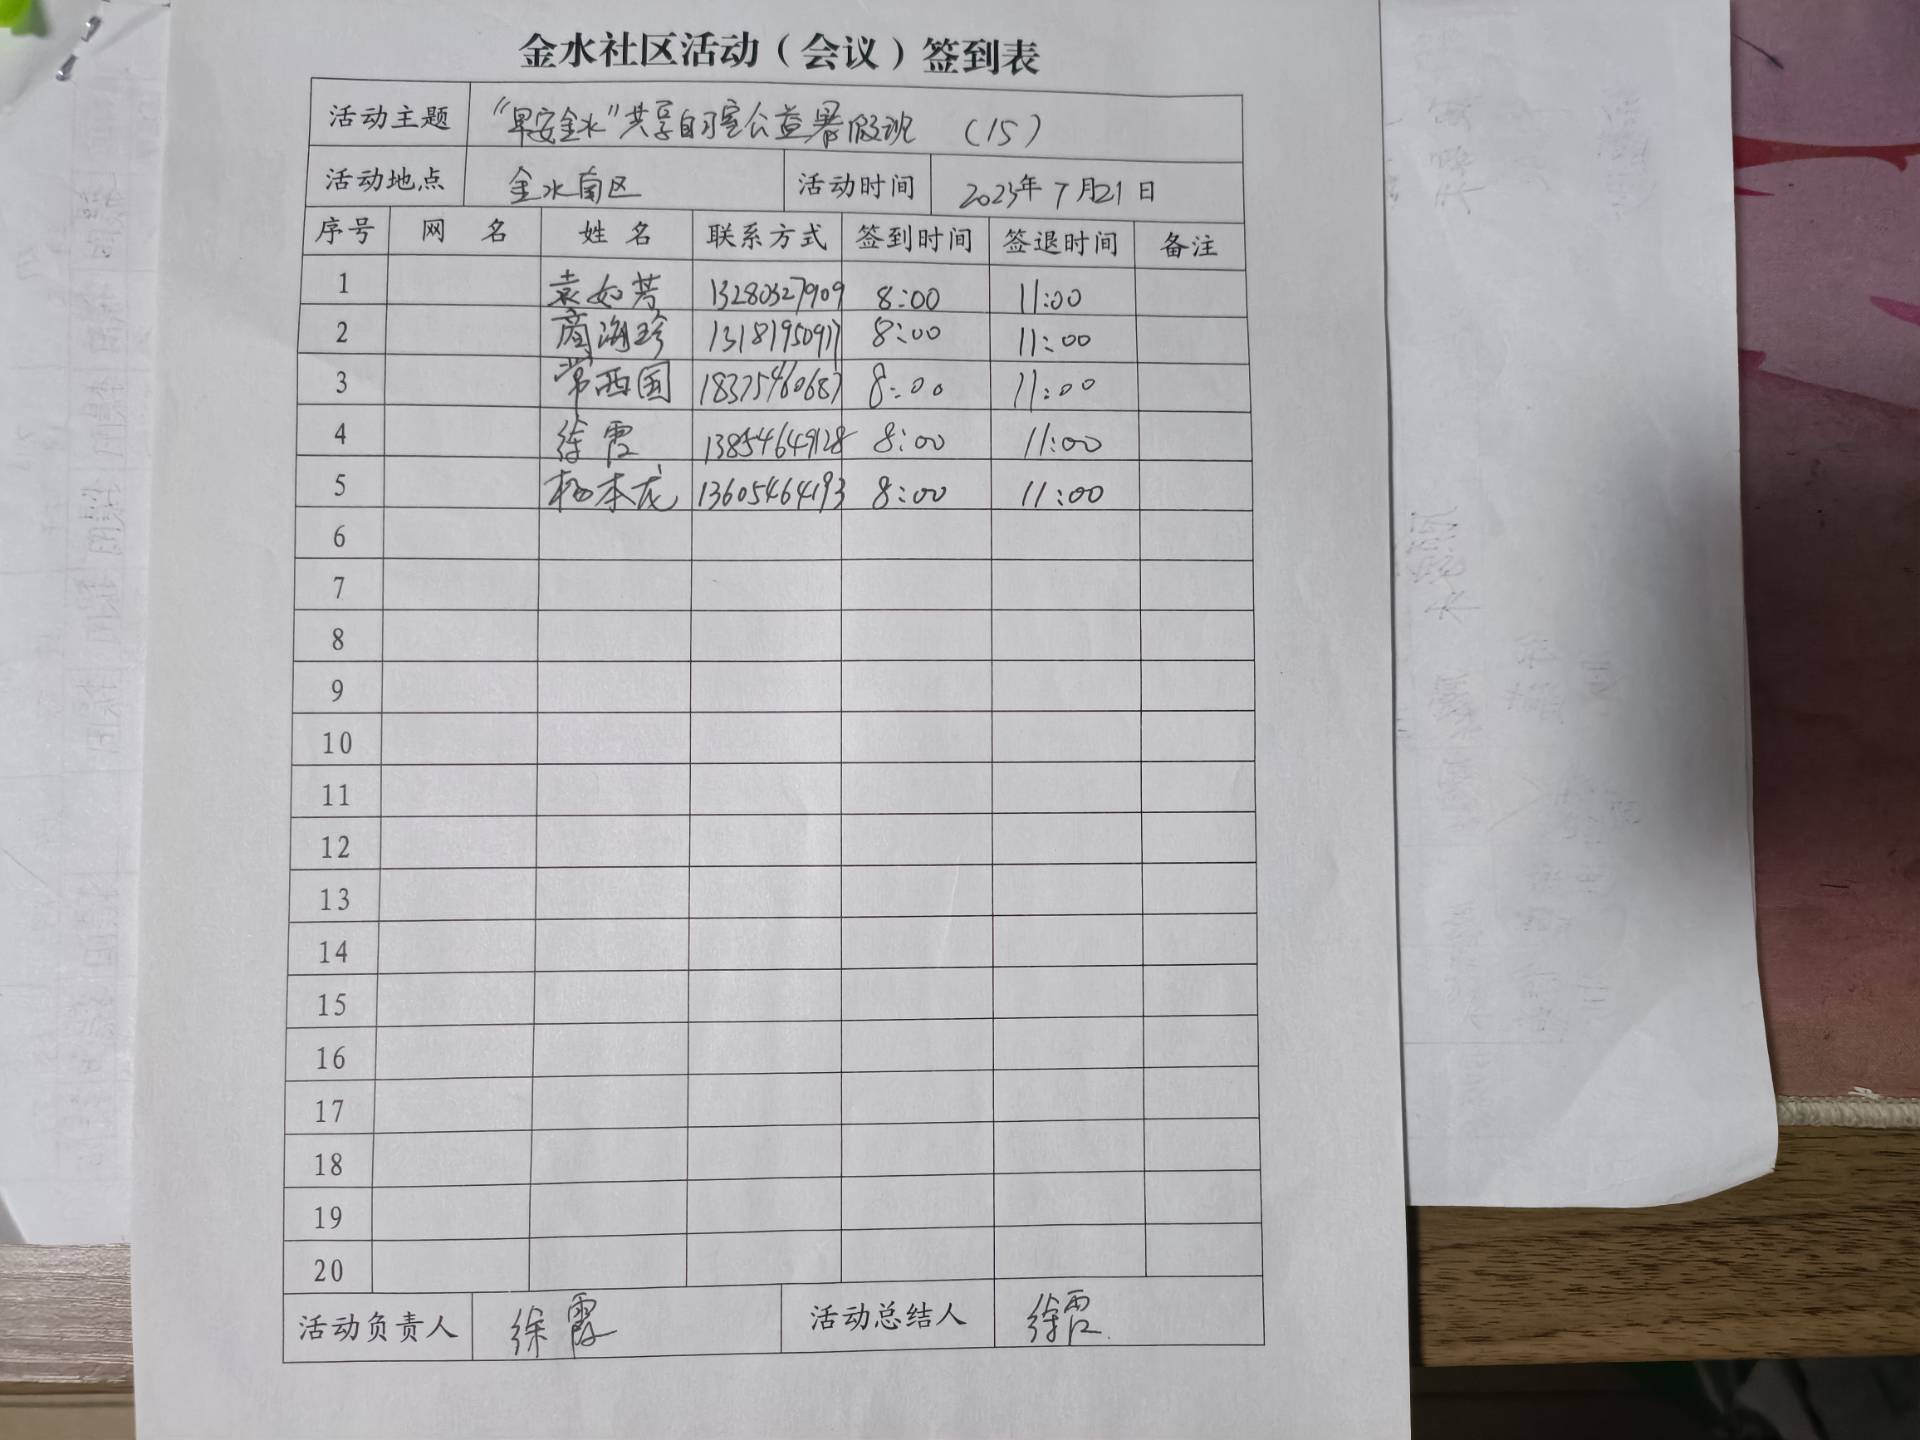 金水社区活动（会议）签到表
活动主题 “早安金水”共享自习室公益暑假班 （15）
活动地点 金水南区 活动时间 2023年7月21日
序号 网 名 姓 名 联系方式 签到时间 签退时间 备注
1 袁如芳 13280327909 8:00 11:00
2 商海珍 13181950917 8:00 11:00
3 常西国 18375460687 8:00 11:00
4 徐霞 13854649128 8:00 11:00
5 杨本龙 13605464193 8:00 11:00
6
7
8
9
10
11
12
13
14
15
16
17
18
19
20
活动负责人 徐霞 活动总结人 徐霞